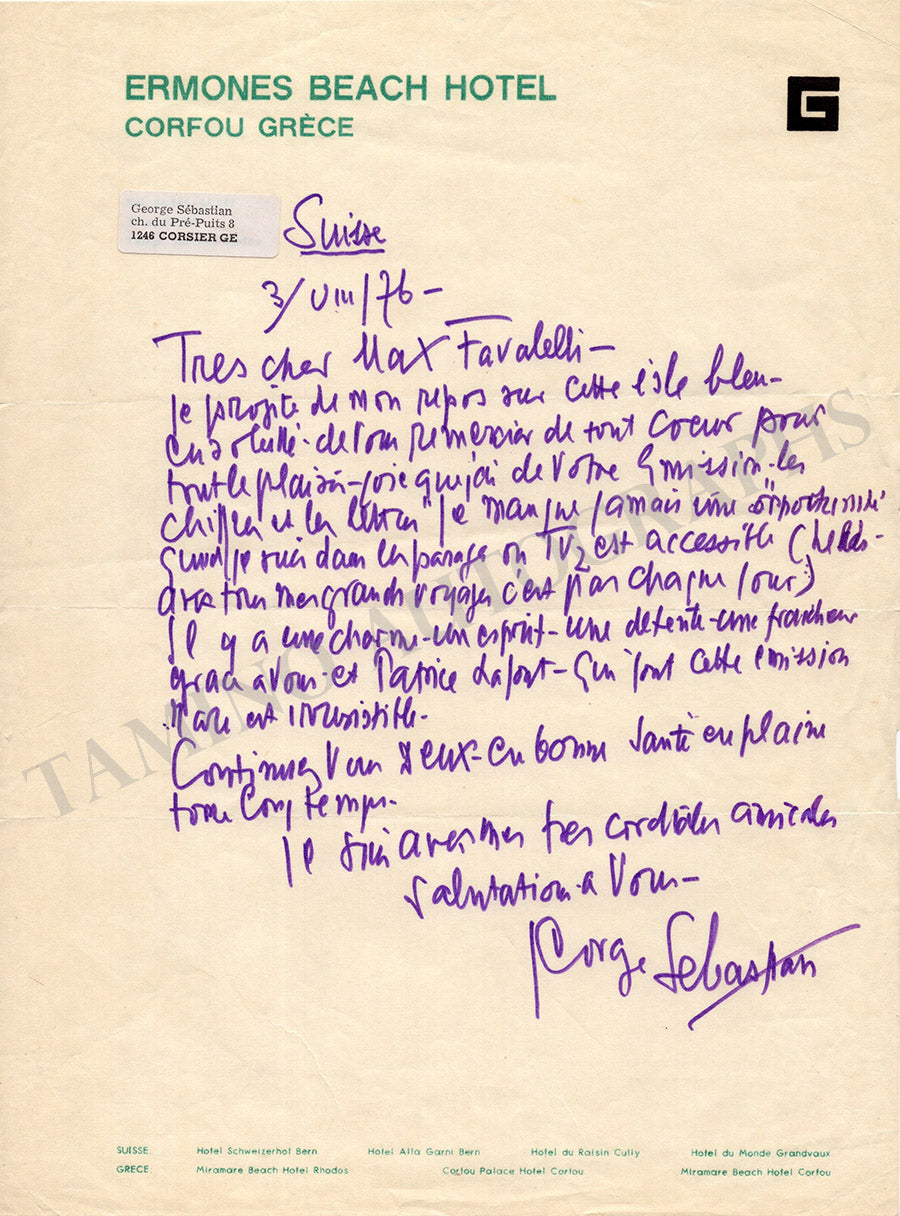 ERMONES BEACH HOTEL
CORFOU GRÈCE
G
George Sébastian
ch. du Pré-Puits 8
1246 CORSIER GE
Suisse
3/VIII/76-
Tres cher Max Favalelli-
je profite de mon repos sur cette isle bleu-
ensoleillé-de vous remercier de tout coeur pour
tout le plaisir-joie que j'ai de Votre Emission-les
chiffres et les lettres" Je manque jamais une opportunité
quand je suis dans les parages ou TV2 est accessible (
avec tous mes grands voyages c'est pas chaque jour)
Il y a une charme-un esprit-une détente-une fraicheur
grace a Vous-et Patrice Lafont-qui font cette emission
rare est irresistible-
Continuez Vous deux-en bonne santé en pleine
forme longtemps-
Je suis avec mes tres cordiales amicales
salutation a Vous-
George Sebastian
TAMINO AUTOGRAPHS
SUISSE Hotel Schweizerhof Bern Hotel Alfa Garni Bern Hotel du Raisin Cully Hotel du Monde Grandvaux
GRECE Miramare Beach Hotel Rhodos Corfou Palace Hotel Corfou Miramare Beach Hotel Corfou